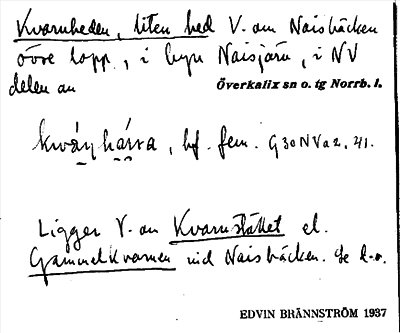 Kvarnheden, liten hed V. om Naisbäcken
övre lopp, i byn Naisjärv, i NV
delen av Överkalix sn o. tg Norrb. l.
bf. fem. G 30 NV a 2, 41.
Ligger V. om Kvarnstället el.
Gammelkvarnen vid Naisbäcken. Se d.o.
EDVIN BRÄNNSTRÖM 1937